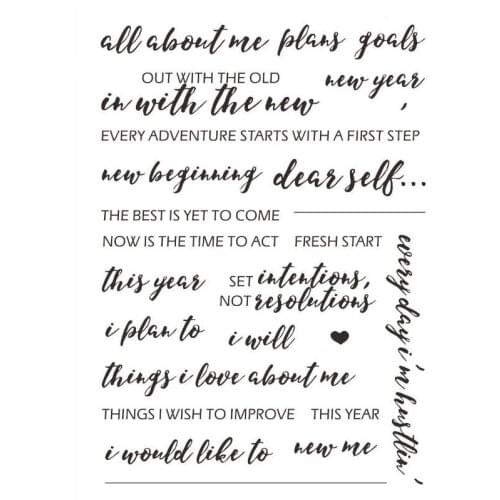 all about me plans goals
OUT WITH THE OLD new year
in with the new ,
EVERY ADVENTURE STARTS WITH A FIRST STEP
new beginning dear self...
THE BEST IS YET TO COME
NOW IS THE TIME TO ACT FRESH START
this year SET intentions,
NOT resolutions
i plan to i will
things i love about me
THINGS I WISH TO IMPROVE THIS YEAR
i would like to new me
every day i'm hustlin'